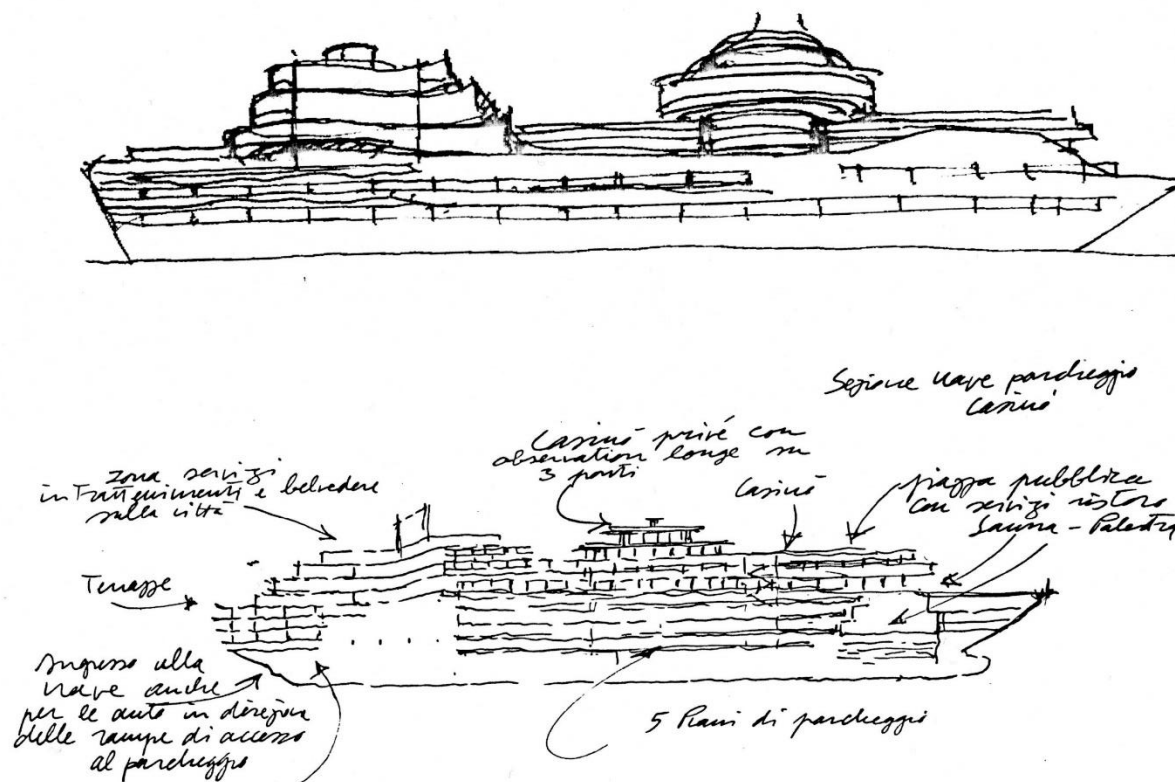 Sezione nave parcheggio
Casinò
zona servizi
intrattenimenti e belvedere
sulla città
Casinò privé con
observation longe su
3 ponti
Casinò
piazza pubblica
con servizi ristoro
Sauna - Palestra
Terrazze
Ingresso alla
nave anche
per le auto in direzione
delle rampe di accesso
al parcheggio
5 Piani di parcheggio